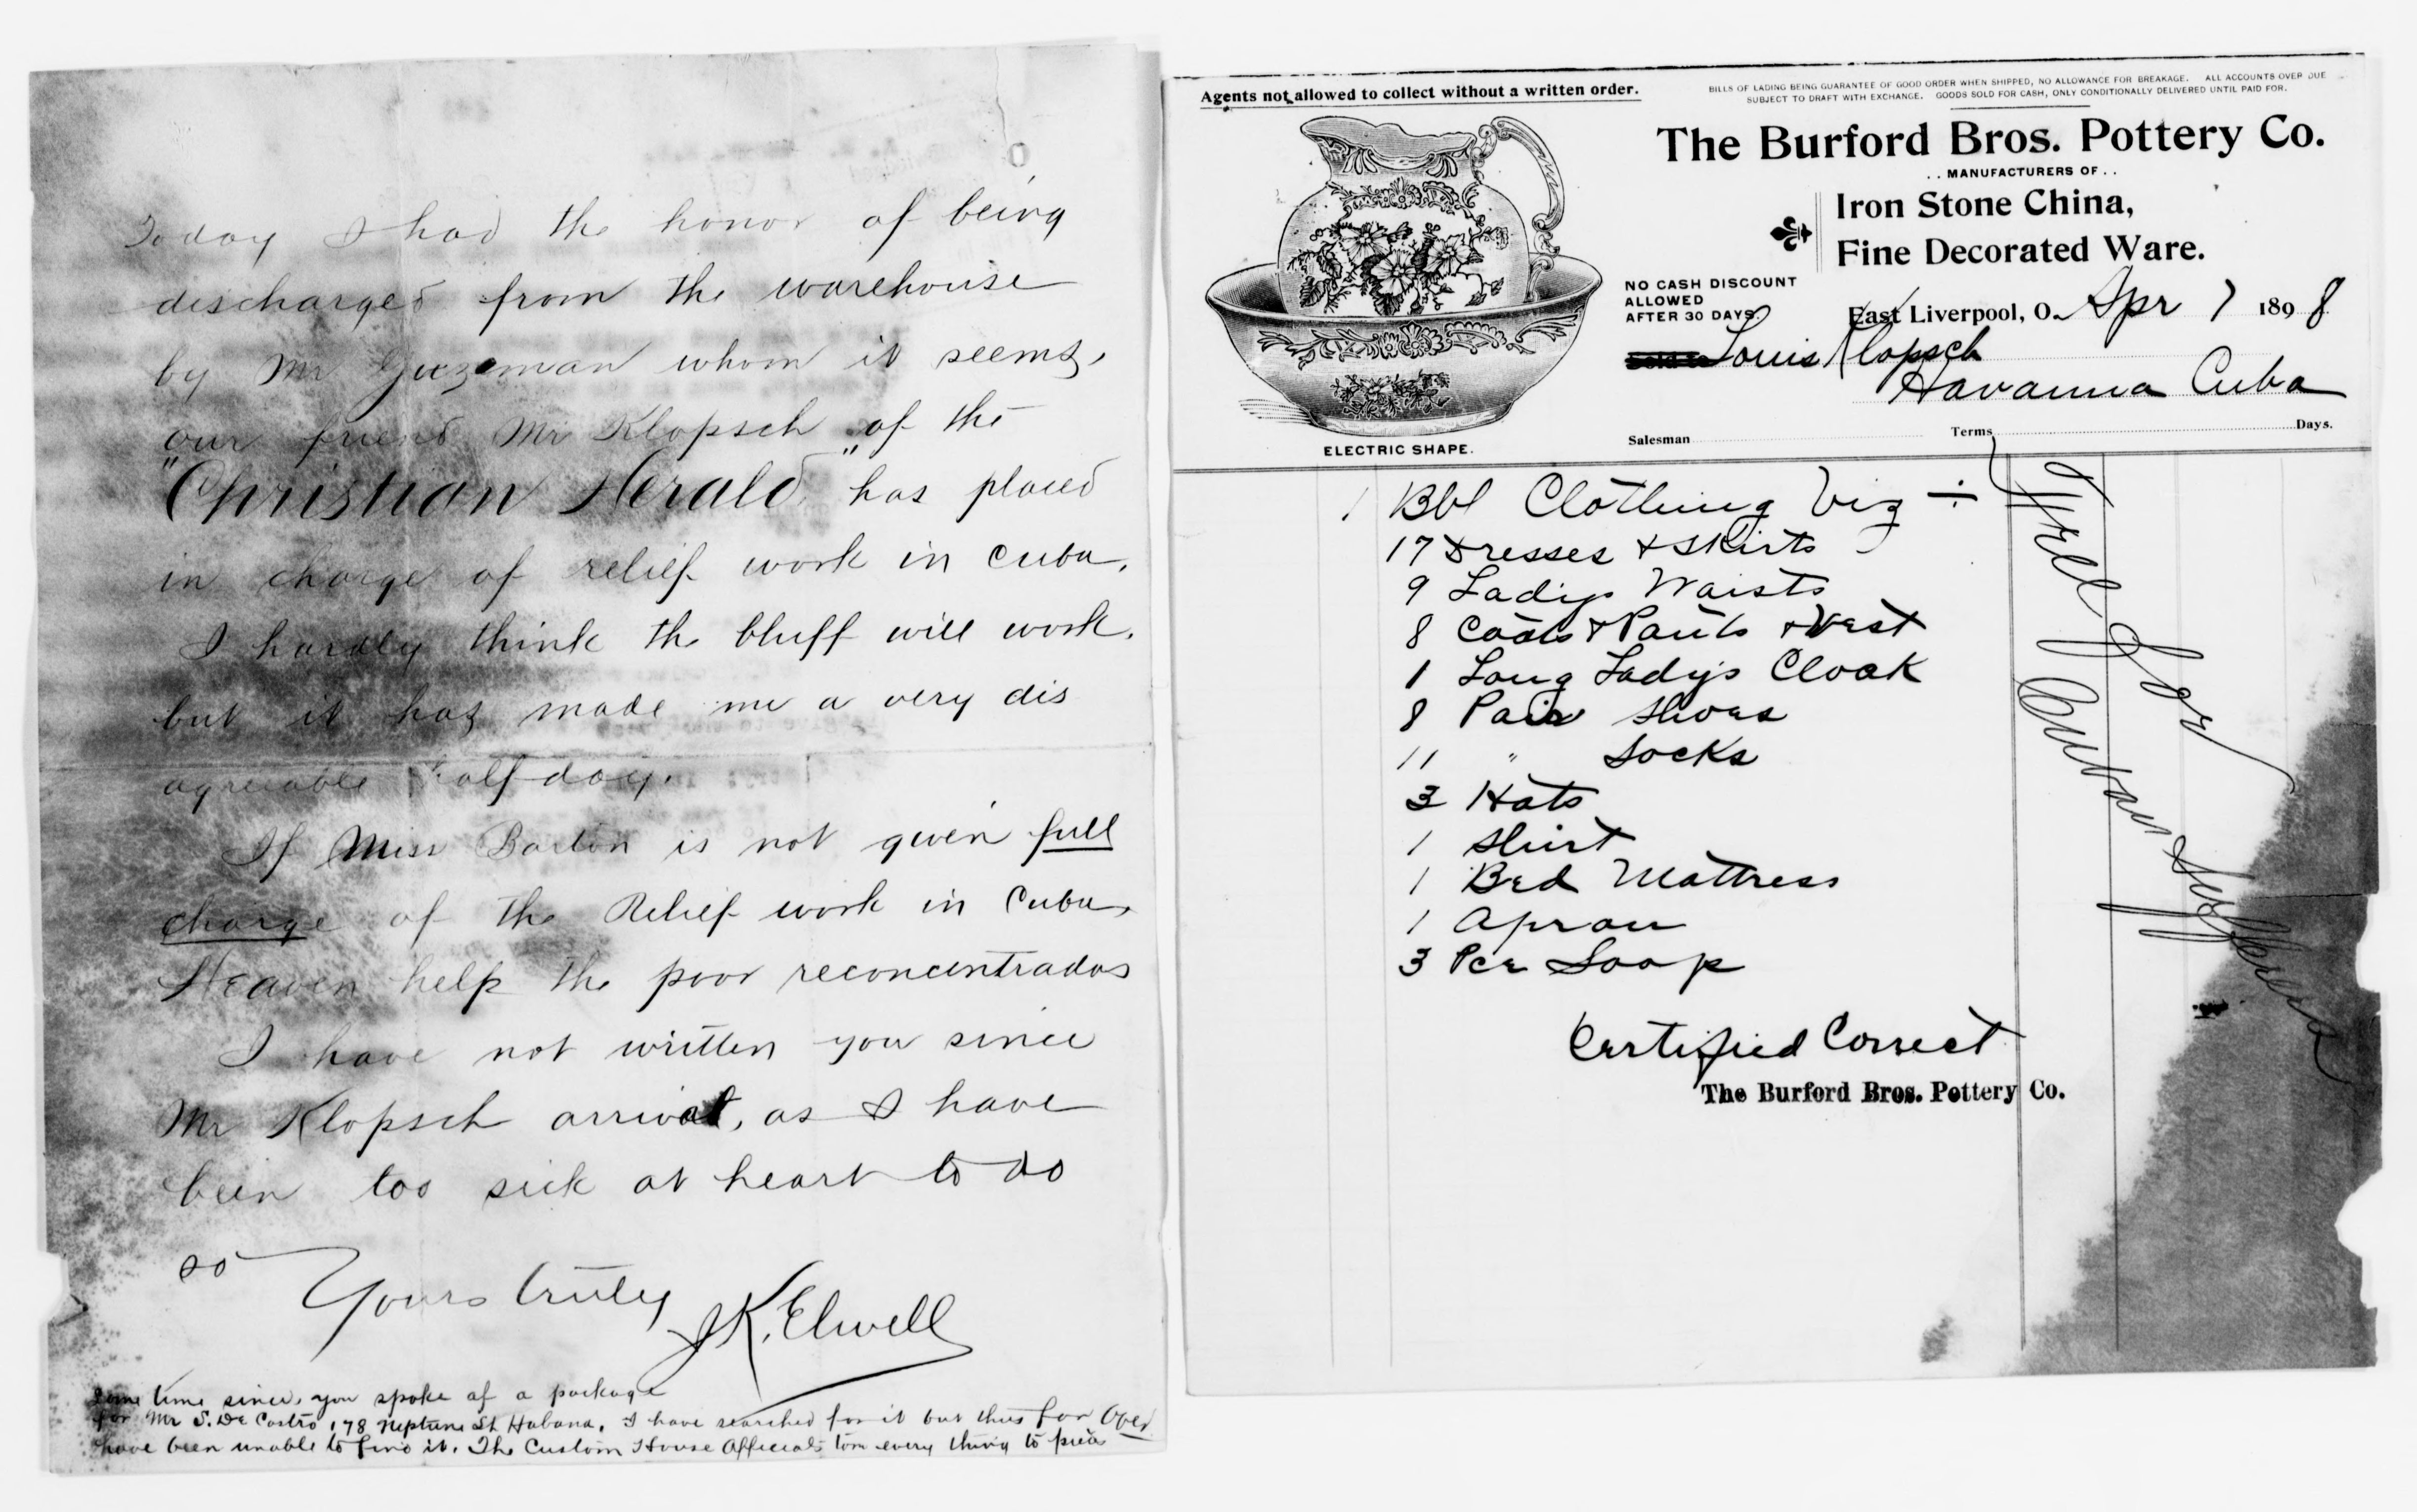 Today I had the honor of being
discharged from the warehouse
by Mr Guzeman whom it seems,
our friend Mr Klopsch of the
"Christian Herald" has placed
in charge of relief work in Cuba.
I hardly think the bluff will work.
but it has made me a very dis
agreeable half day.
If Miss Barton is not given full
charge of the Relief work in Cuba,
Heaven help the poor reconcentrados
I have not written you since
Mr Klopsch arrival, as I have
been too sick at heart to do
so
Yours truly
JK. Elwell
Some time since, you spoke of a package
for Mr S. De Castro, 178 Neptune St Habana. I have searched for it but thus far
have been unable to find it. The Custom House Officials tore every thing to pieces
Over
Agents not allowed to collect without a written order.
BILLS OF LADING BEING GUARANTEE OF GOOD ORDER WHEN SHIPPED, NO ALLOWANCE FOR BREAKAGE. ALL ACCOUNTS OVER DUE
SUBJECT TO DRAFT WITH EXCHANGE. GOODS SOLD FOR CASH, ONLY CONDITIONALLY DELIVERED UNTIL PAID FOR.
The Burford Bros. Pottery Co.
. . MANUFACTURERS OF . .
Iron Stone China,
Fine Decorated Ware.
NO CASH DISCOUNT
ALLOWED
AFTER 30 DAYS.
East Liverpool, O. Apr 7 1898
Sold to Louis Klopsch
Havanna Cuba
Salesman Terms Days.
ELECTRIC SHAPE.
1 Bbl Clothing Viz ÷
17 Dresses & Skirts
9 Ladys Waists
8 Coats & Pants & Vest
1 Long Ladys Cloak
8 Pair Shoes
11 " Socks
3 Hats
1 Shirt
1 Bed Mattress
1 Apron
3 Pce Soap
Certified Correct
The Burford Bros. Pottery Co.
for
Cuban Sufferers